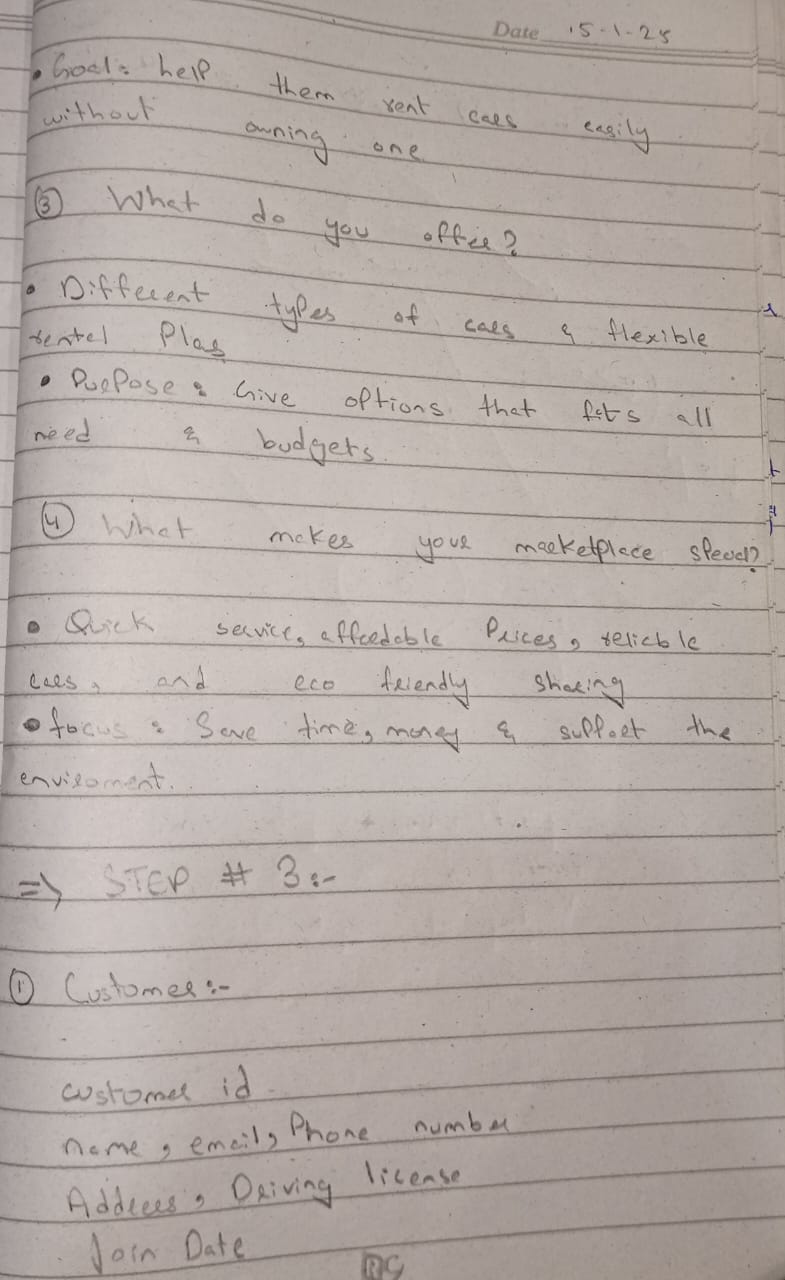 Date 15-1-25
• Goal: help them rent cars easily
without owning one
③ What do you offer?
• Different types of cars & flexible
rental Plas
• Purpose: Give options that fits all
need & budgets.
④ What makes your marketplace
• Quick service, affordable Prices, reliable
cars, and eco friendly sharing
• focus: Save time, money & support the
enviroment.
=> STEP # 3:-
① Customer:-
customer id
name, email, Phone number
Address, Driving license
Join Date